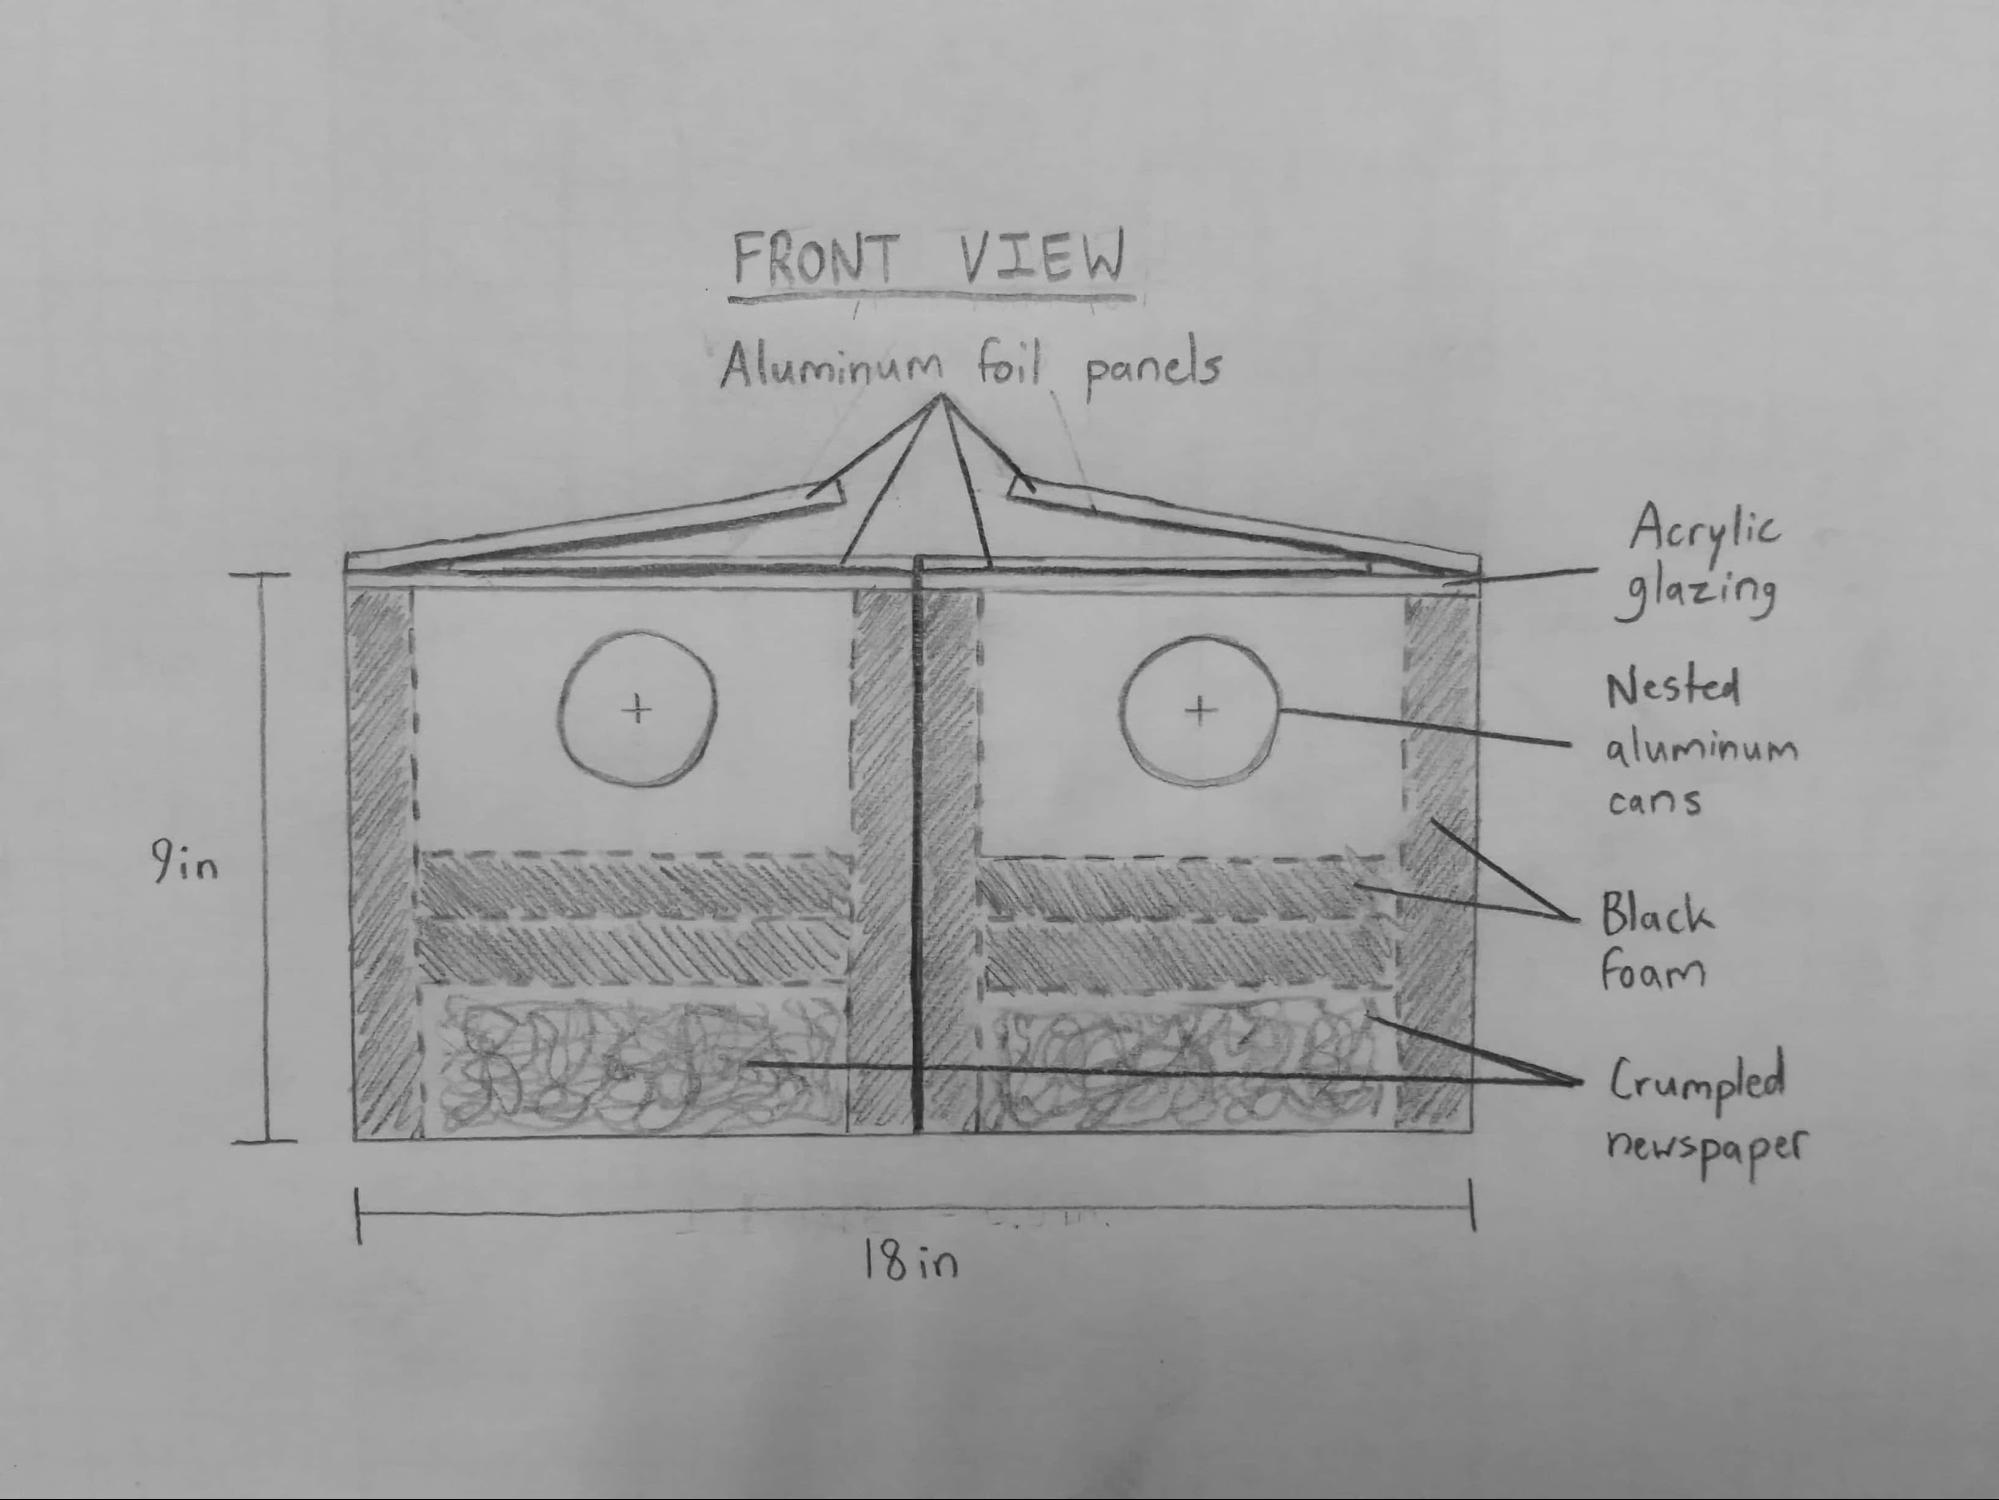 FRONT VIEW
Aluminum foil panels
Acrylic
glazing
Nested
aluminum
cans
9in
Black
foam
Crumpled
newspaper
18in